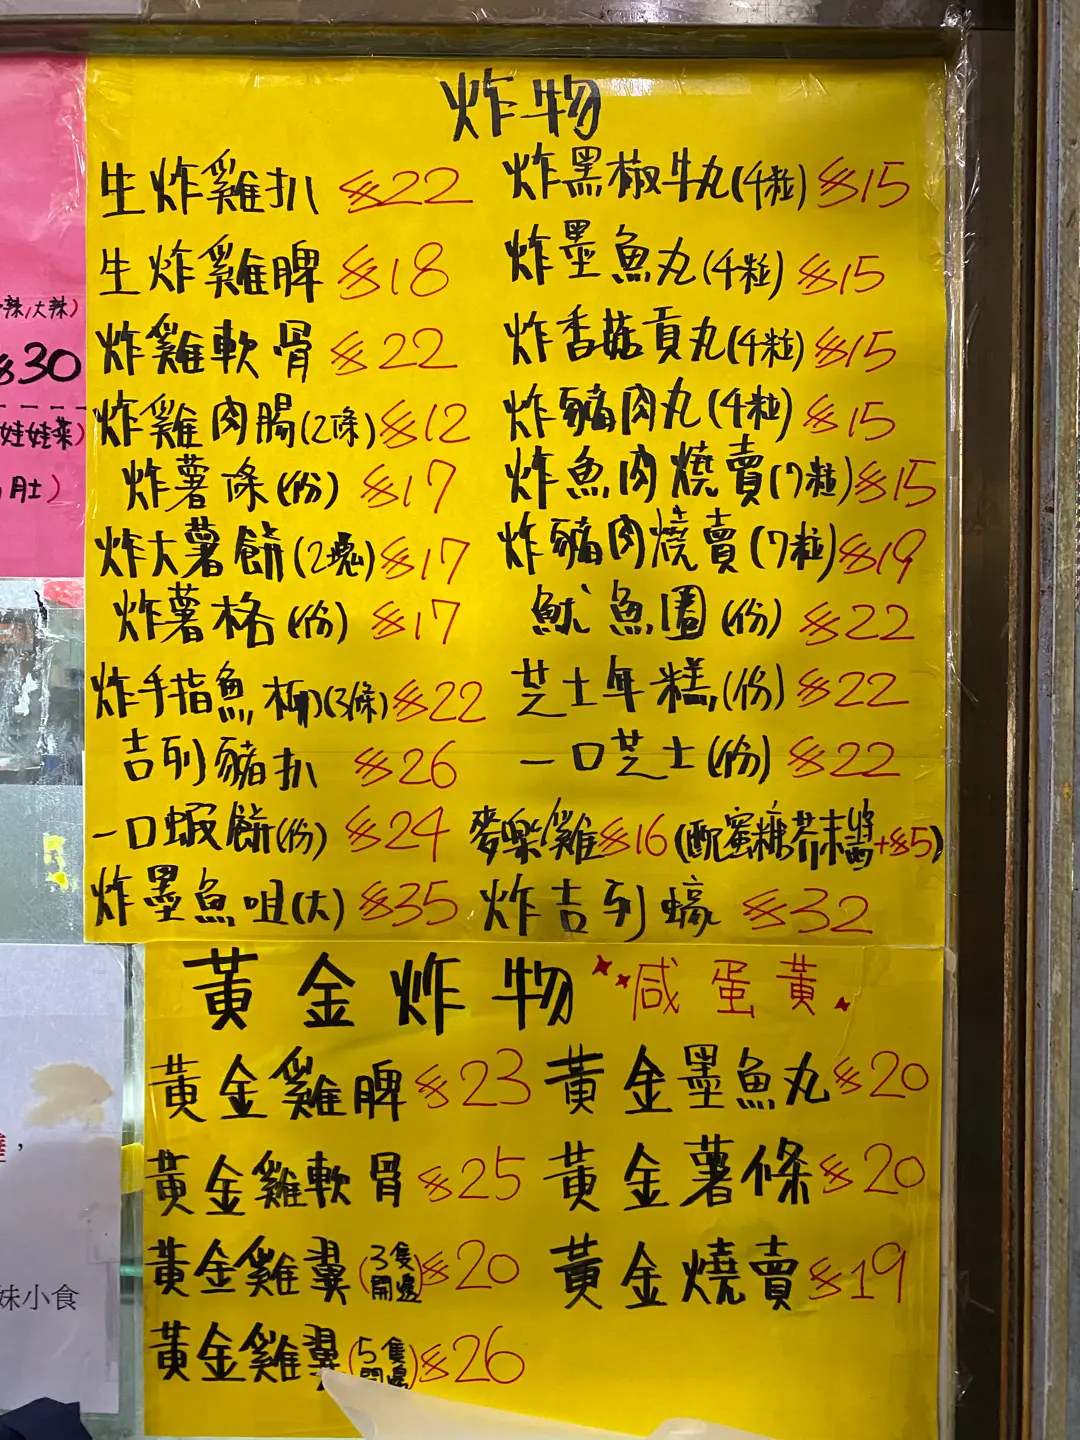 炸物
生炸雞扒 $22
生炸雞脾 $18
炸雞軟骨 $22
炸雞肉腸(2條) $12
炸薯條(份) $17
炸大薯餅(2塊) $17
炸薯格(份) $17
炸手指魚柳(3條) $22
吉列豬扒 $26
一口蝦餅(份) $24
炸墨魚咀(大) $35
炸黑椒牛丸(4粒) $15
炸墨魚丸(4粒) $15
炸香菇貢丸(4粒) $15
炸豬肉丸(4粒) $15
炸魚肉燒賣(7粒) $15
炸豬肉燒賣(7粒) $19
魷魚圈(份) $22
芝士年糕(份) $22
一口芝士(份) $22
麥樂雞 $16 (配蜜糖芥末醬+$5)
炸吉列蠔 $32
黃金炸物 咸蛋黃
黃金雞脾 $23
黃金雞軟骨 $25
黃金雞翼(3隻開邊) $20
黃金雞翼(5隻開邊) $26
黃金墨魚丸 $20
黃金薯條 $20
黃金燒賣 $19
辣/大辣)
$30
娃娃菜)
肚)
妹小食